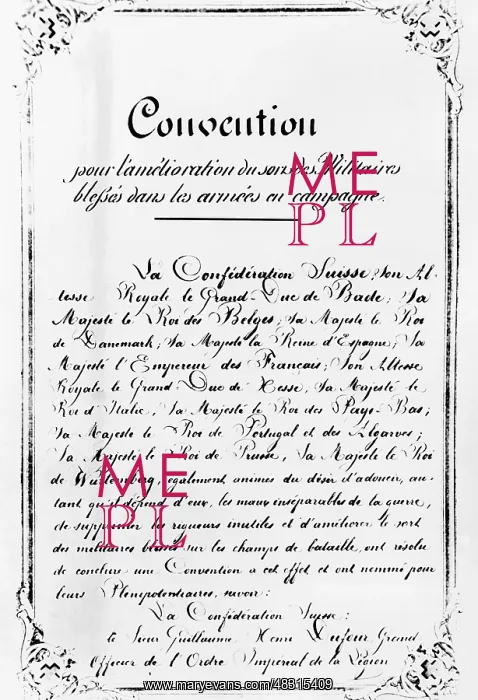 Convention
pour l'amélioration du sort des Militaires
blessés dans les armées en campagne.
ME
PL
La Confédération Suisse, Son Al-
tesse Royale le Grand-Duc de Bade; Sa
Majesté le Roi des Belges; Sa Majesté le Roi
de Danemark; Sa Majesté la Reine d'Espagne; Sa
Majesté l'Empereur des Français; Son Altesse
Royale le Grand-Duc de Hesse; Sa Majesté le
Roi d'Italie; Sa Majesté le Roi des Pays-Bas;
Sa Majesté le Roi de Portugal et des Algarves;
Sa Majesté le Roi de Prusse, Sa Majesté le Roi
de Würtemberg, également animés du désir d'adoucir, au-
ME
PL
tant qu'il dépend d'eux, les maux inséparables de la guerre,
de supprimer les rigueurs inutiles et d'améliorer le sort
des militaires blessés sur les champs de bataille, ont résolu
de conclure une Convention à cet effet et ont nommé pour
leurs Plénipotentiaires, savoir:
La Confédération Suisse:
le Sieur Guillaume Henri Dufour Grand
Officier de l'Ordre Impérial de la Légion
www.maryevans.com/48315409